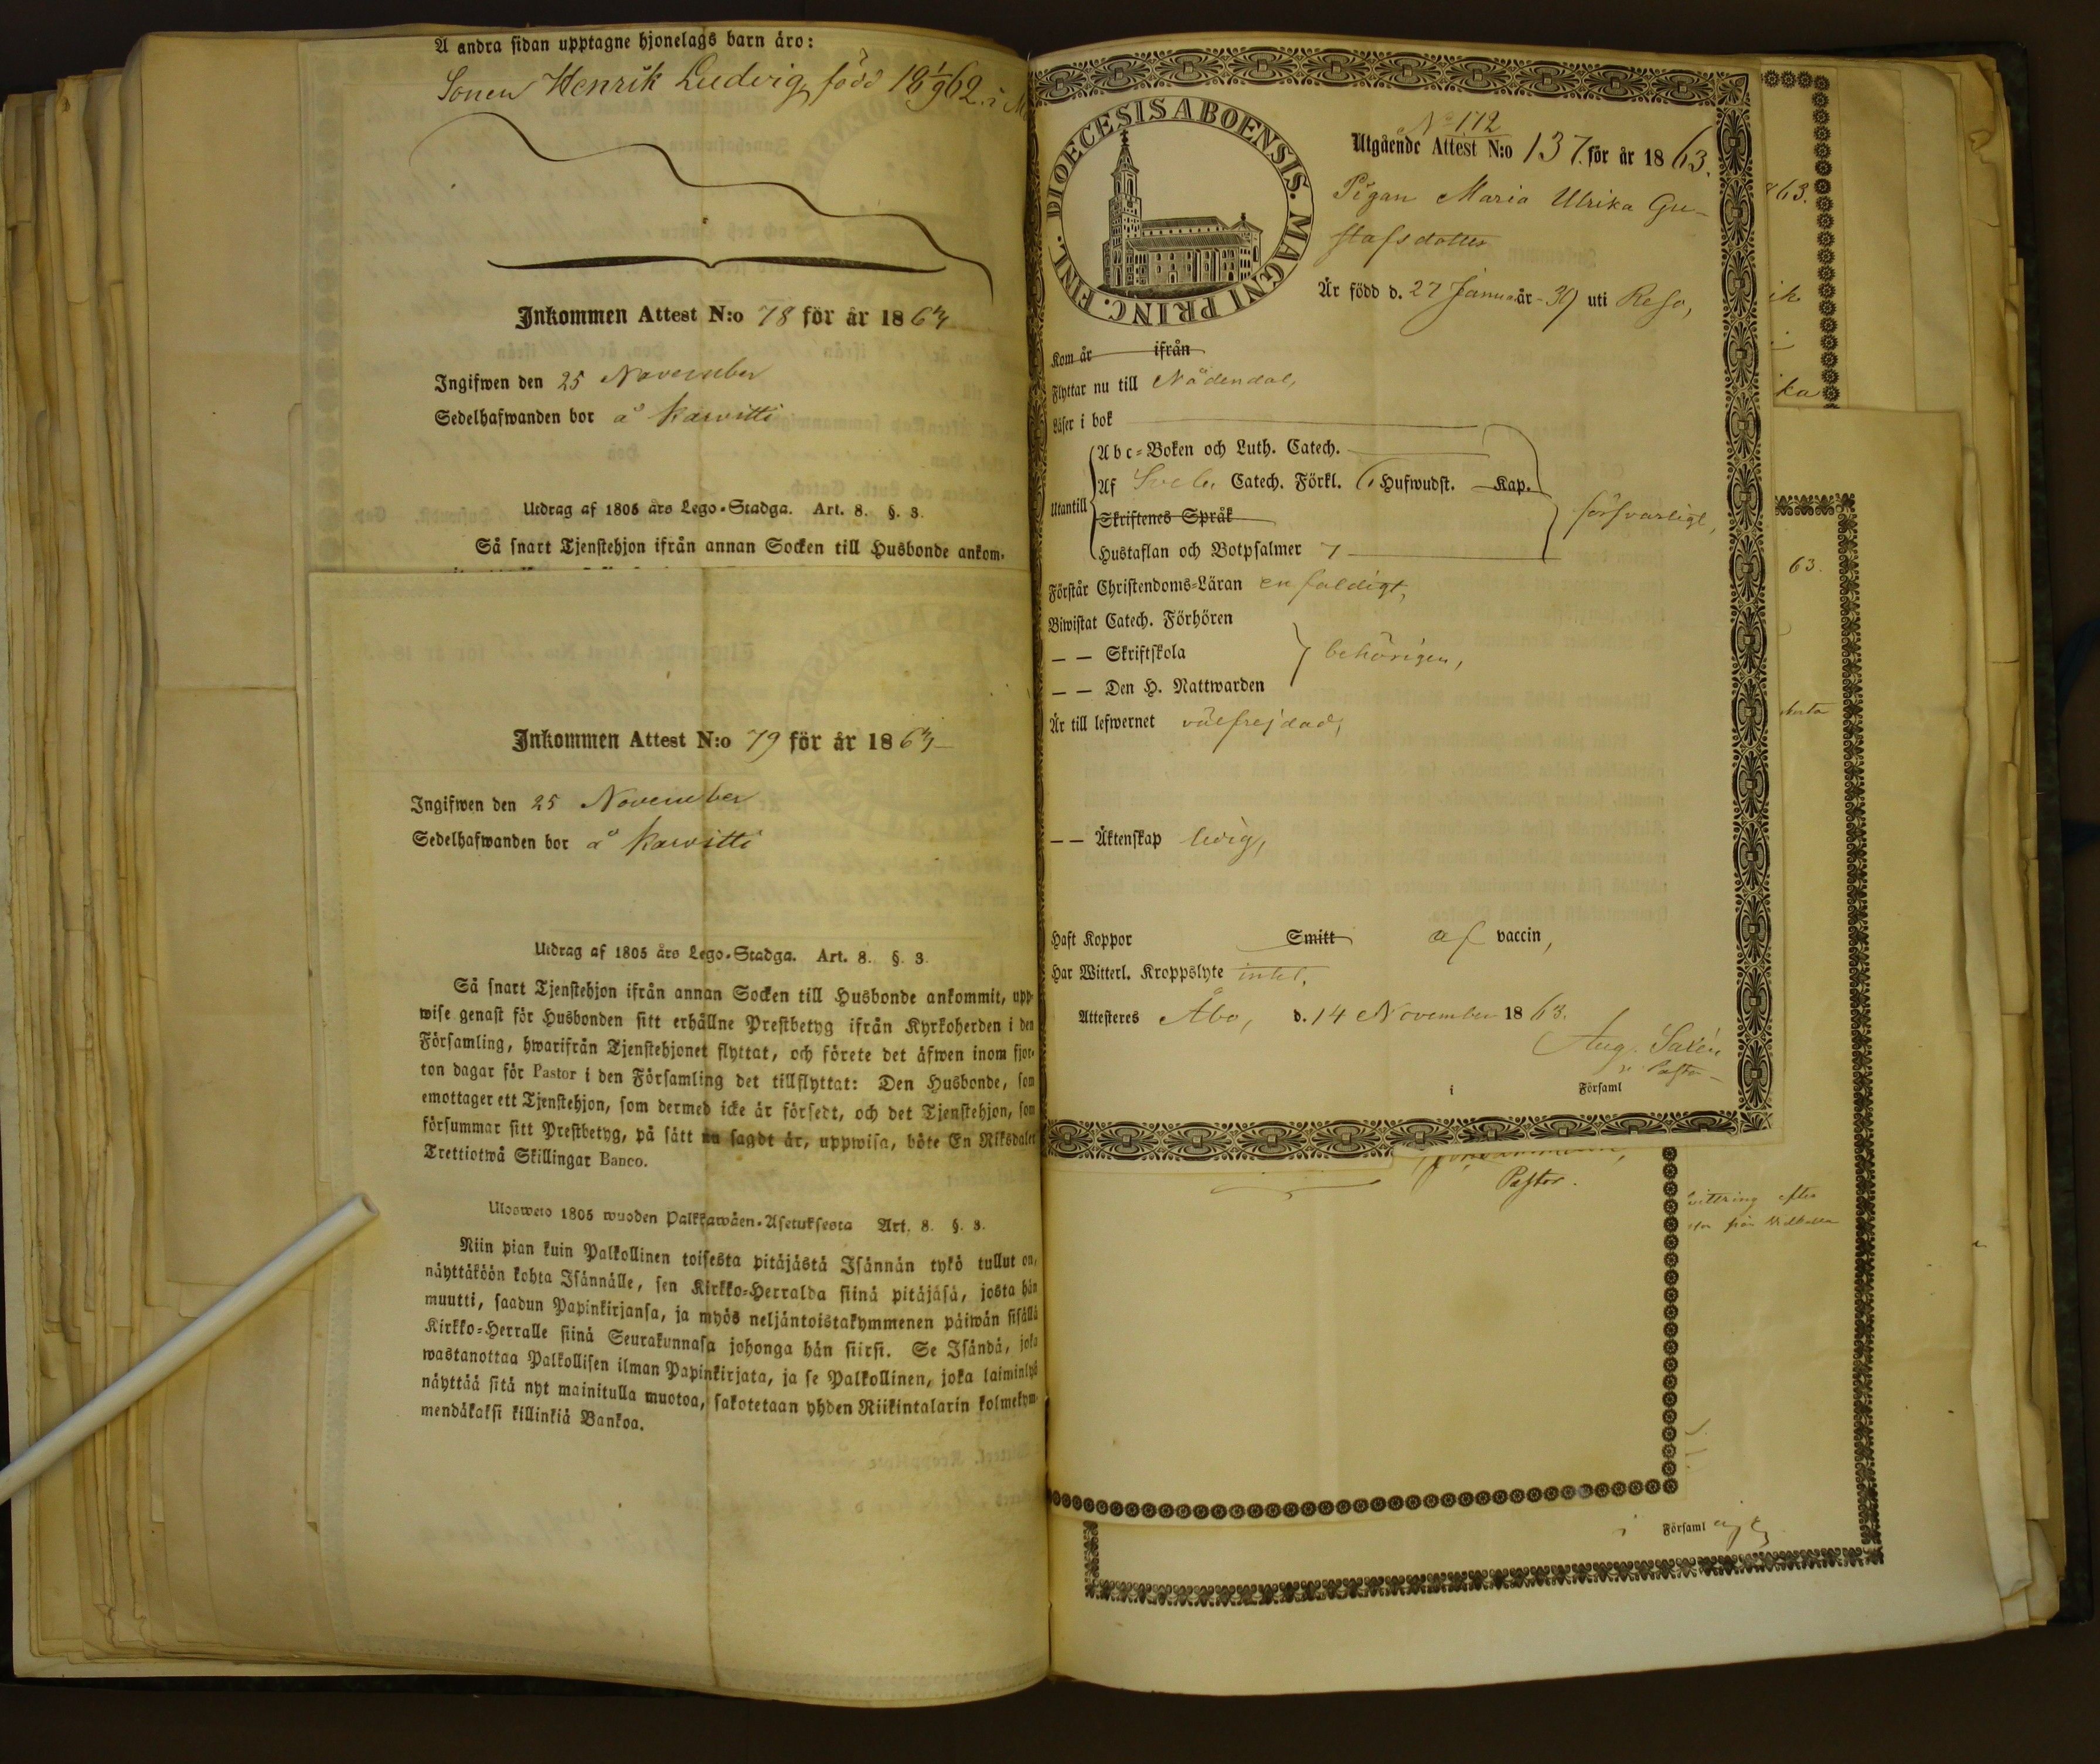 A andra sidan upptagne hjonelags barn äro:
Sonen Henrik Ludvig, född 18 1/9 62. i
Inkommen Attest N:o 78 för år 1863
Ingifwen den 25 November
Sedelhafwanden bor å Karvitti
Utdrag af 1805 års Lego-Stadga. Art. 8. §. 3.
Så snart Tjenstehjon ifrån annan Socken till Husbonde ankom-
Inkommen Attest N:o 79 för år 1863
Ingifwen den 25 November
Sedelhafwanden bor å Karvitti
Utdrag af 1805 års Lego-Stadga. Art. 8. §. 3.
Så snart Tjenstehjon ifrån annan Socken till Husbonde ankommit, upp-
wise genast för Husbonden sitt erhållne Prestbetyg ifrån Kyrkoherden i den
Församling, hwarifrån Tjenstehjonet flyttat, och förete det äfwen inom fjor-
ton dagar för Pastor i den Församling det tillflyttat: Den Husbonde, som
emottager ett Tjenstehjon, som dermed icke är försedt, och det Tjenstehjon, som
försummar sitt Prestbetyg, på sätt nu sagdt är, uppwisa, böte En Riksdaler
Trettiotwå Skillingar Banco.
Ulosweto 1805 wuoden Palkkawäen-Asetuksesta Art. 8. §. 3.
Niin pian kuin Palkollinen toisesta pitäjästä Isännän tykö tullut on,
näyttäköön kohta Isännälle, sen Kirkko-Herralda siinä pitäjäsä, josta hän
muutti, saadun Papinkirjansa, ja myös neljäntoistakymmenen päiwän sisällä
Kirkko-Herralle siinä Seurakunnasa johonga hän siirsi. Se Isändä, joka
wastanottaa Palkollisen ilman Papinkirjata, ja se Palkollinen, joka laiminlyö
näyttää sitä nyt mainitulla muotoa, sakotetaan yhden Riikintalarin kolmekym-
mendäkaksi killinkiä Bankoa.
DIOECESIS ABOENSIS. MAGNI PRINC. FINL.
No 112
Utgående Attest N:o 137. för år 1863.
Pigan Maria Ulrika Gu-
stafsdotter
Är född d. 27 Januari år -39 uti Reso,
Kom år ifrån
Flyttar nu till Nådendal,
Läser i bok
Utantill
Abc-Boken och Luth. Catech.
Af Sveb. Catech. Förkl. 6 Hufwudst. Kap.
Skriftenes Språk
Hustaflan och Botpsalmer 7
försvarligt,
Förstår Christendoms-Läran enfaldigt,
Biwistat Catech. Förhören
— — Skriftskola
behörigen,
— — Den H. Nattwarden
Är till lefwernet välfrejdad,
— — Äktenskap ledig,
Haft Koppor Smitt af vaccin,
Har Witterl. Kroppslyte intet,
Attesteres Åbo, d. 14 November 1863.
Aug. Saxén
v. Pastor
i Församl
Pastor.
i Församl
863.
ik
ika
63.
efter